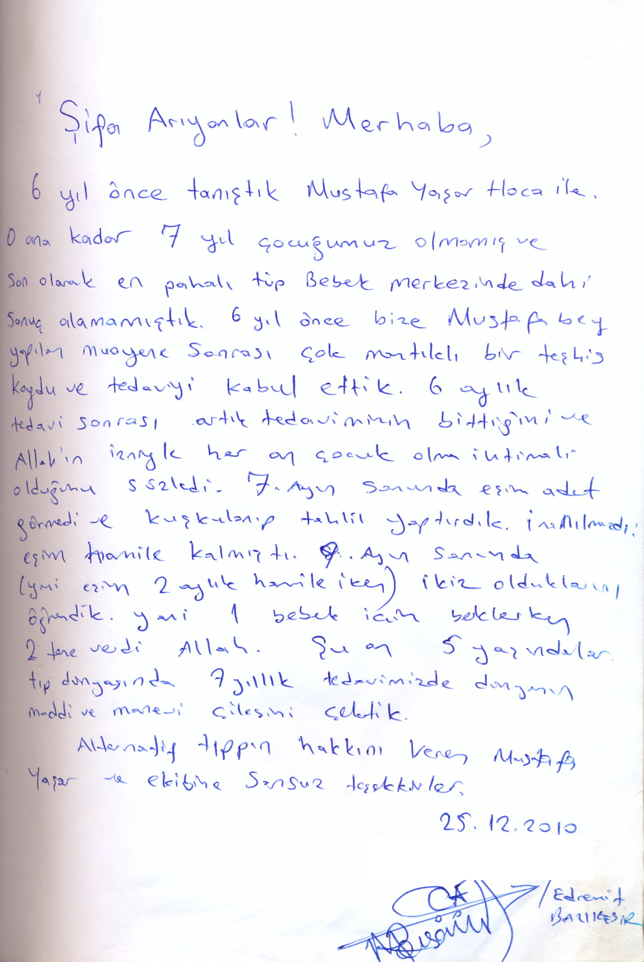 Şifa Arıyanlar! Merhaba,
6 yıl önce tanıştık Mustafa Yaşar Hoca ile.
O ana kadar 7 yıl çocuğumuz olmamış ve
Son olarak en pahalı tüp Bebek merkezinde dahi
Sonuç alamamıştık. 6 yıl önce bize Mustafa bey
yapılan muayene Sonrası çok mantıklı bir teşhis
koydu ve tedaviyi kabul ettik. 6 aylık
tedavi sonrası artık tedavimizin bittiğini ve
Allah'ın izniyle her an çocuk olma ihtimali
olduğunu söyledi. 7. Ayın Sonunda eşim adet
görmedi ve kuşkulanıp tahlil yaptırdık. İnanılmazdı:
eşim hamile kalmıştı. 9. Ayın Sonunda
(yani eşim 2 aylık hamile iken) ikiz olduklarını
öğrendik. yani 1 bebek için beklerken
2 tane verdi Allah. Şu an 5 yaşındalar.
tıp dünyasında 7 yıllık tedavimizde dünyanın
maddi ve manevi çilesini çektik.
Alternatif tıppın hakkını veren Mustafa
Yaşar ve ekibine Sonsuz teşekkürler.
25.12.2010
/Edremit
BALIKESİR